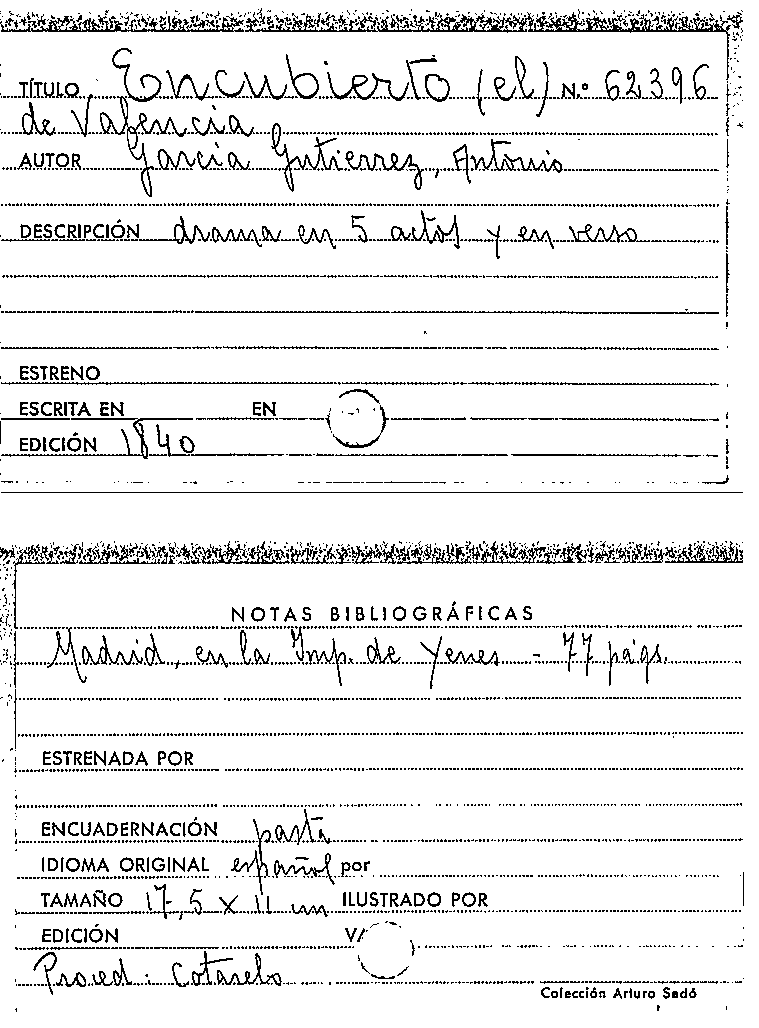 TÍTULO Encubierto (el) N.º 62396
de Valencia
AUTOR García Gutierrez, Antonio
DESCRIPCIÓN drama en 5 actos y en verso
ESTRENO
ESCRITA EN EN
EDICIÓN 1840
NOTAS BIBLIOGRÁFICAS
Madrid, en la Imp. de Yenes - 77 págs.
ESTRENADA POR
ENCUADERNACIÓN pasta
IDIOMA ORIGINAL español por
TAMAÑO 17,5 x 11 cm ILUSTRADO POR
EDICIÓN V/
Proced: Cotarelo
Colección Arturo Sedó